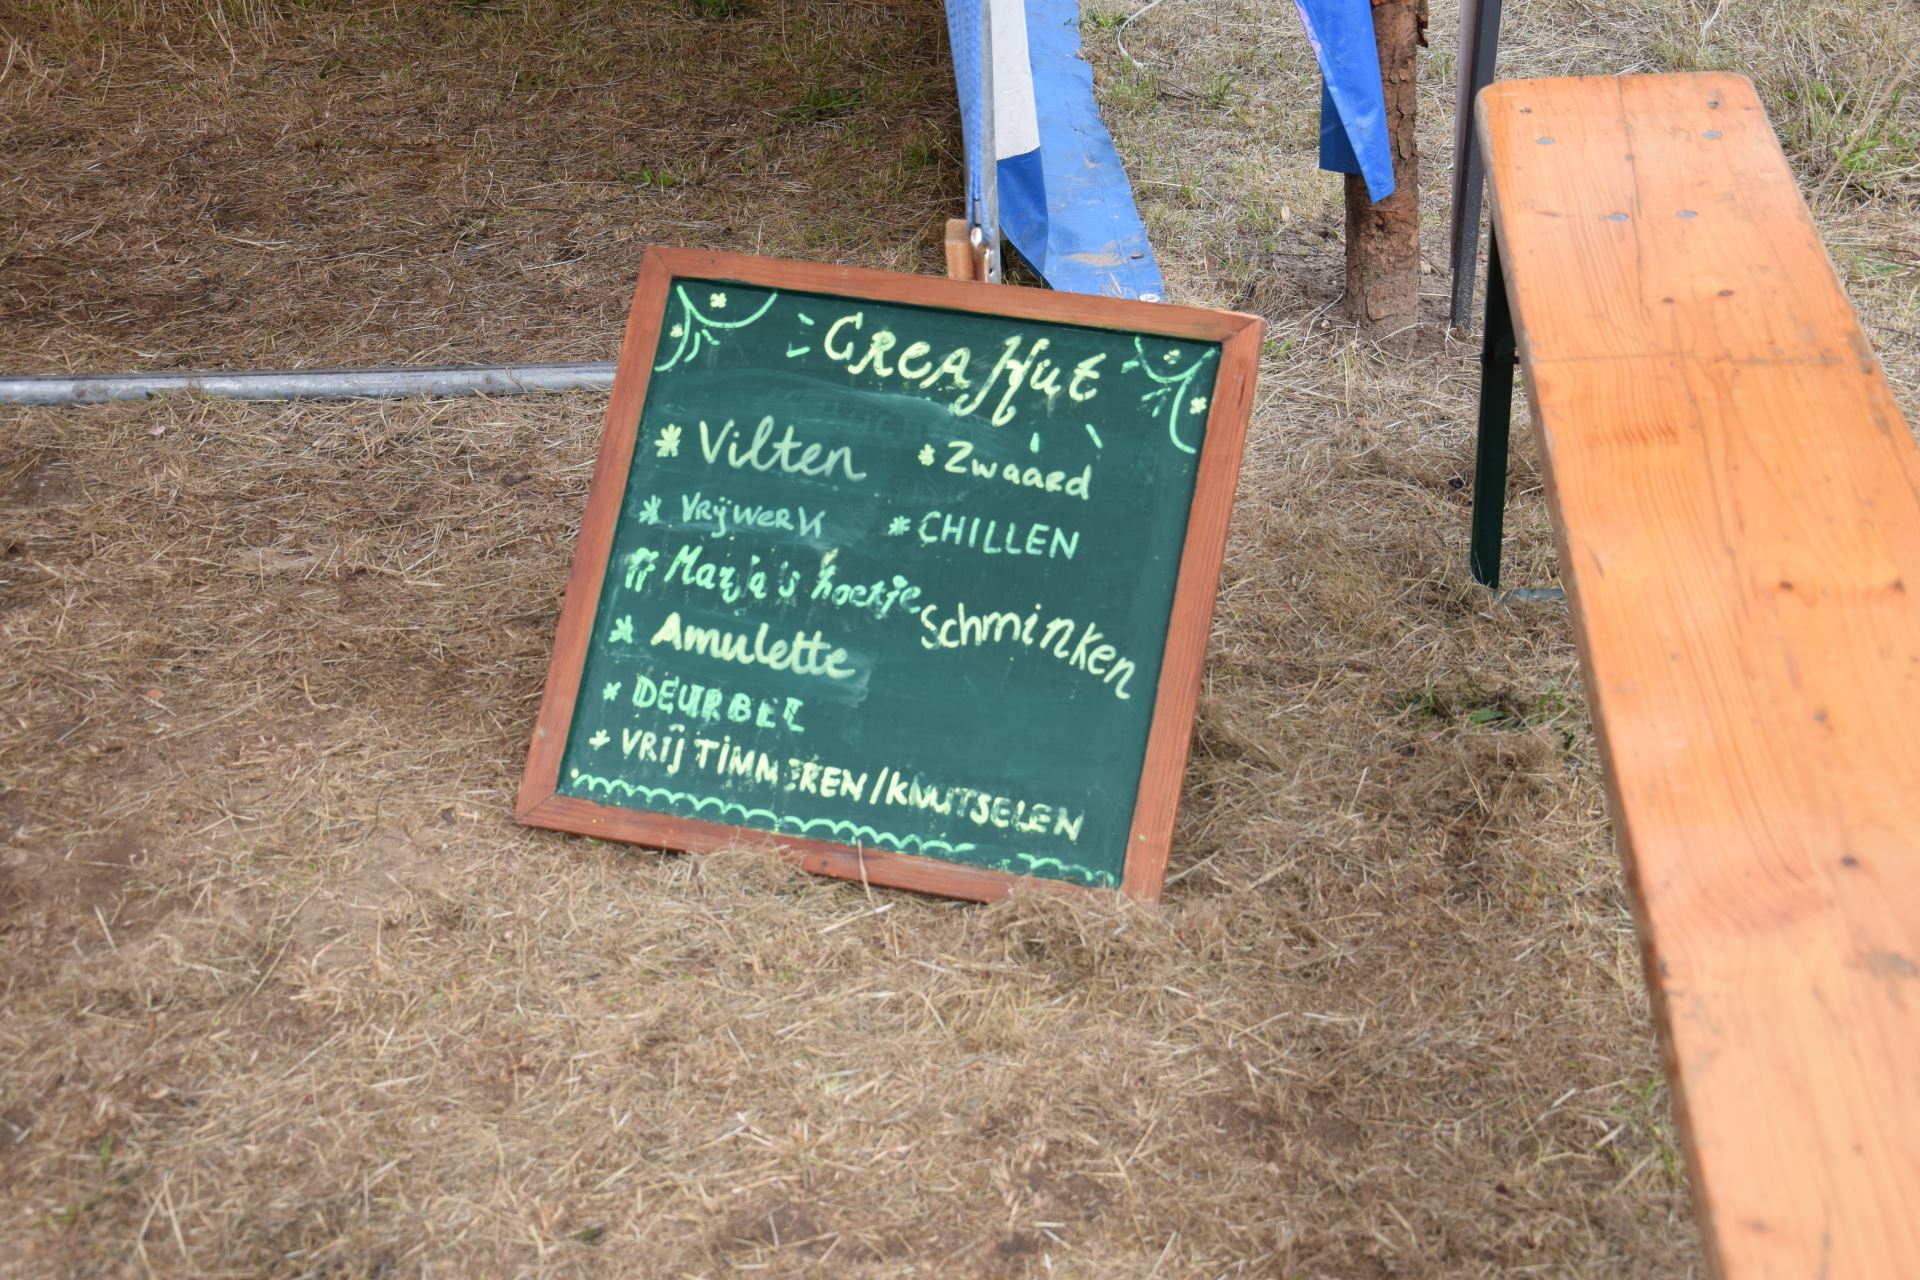 CREA Hut
* Vilten
* Zwaard
* Vrijwerk
* CHILLEN
Marja's hoekje
Schminken
* Amulette
* DEURBEL
* VRIJ TIMMEREN/KNUTSELEN